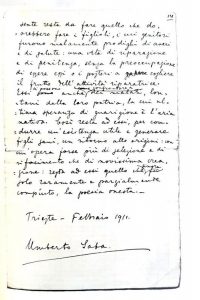 sente resta da fare quello che do,
vrebbero fare i figli, i cui genitori
furono malamente prodighi di averi
e di salute: una vita di riparazione
e di penitenza, senza la preoccupazione
di opere cui si postori a cogliere
il frutto dell'attività riparatrice.
Essi sono ammalati,
tani dalla loro patria, la cui ul,
tima speranza di guarigione è l'aria
nativa. Così resta ad essi, per con,
durre un'esistenza utile e generare
figli sani, un ritorno alle origini: con
un'opera forse più di selezione e di
rifacimento che di novissima crea,
zione: resta ad essi quello che fu
solo raramente e parzialmente
compiuto, la poesia onesta.
Trieste - Febbraio 1911.
Umberto Saba.